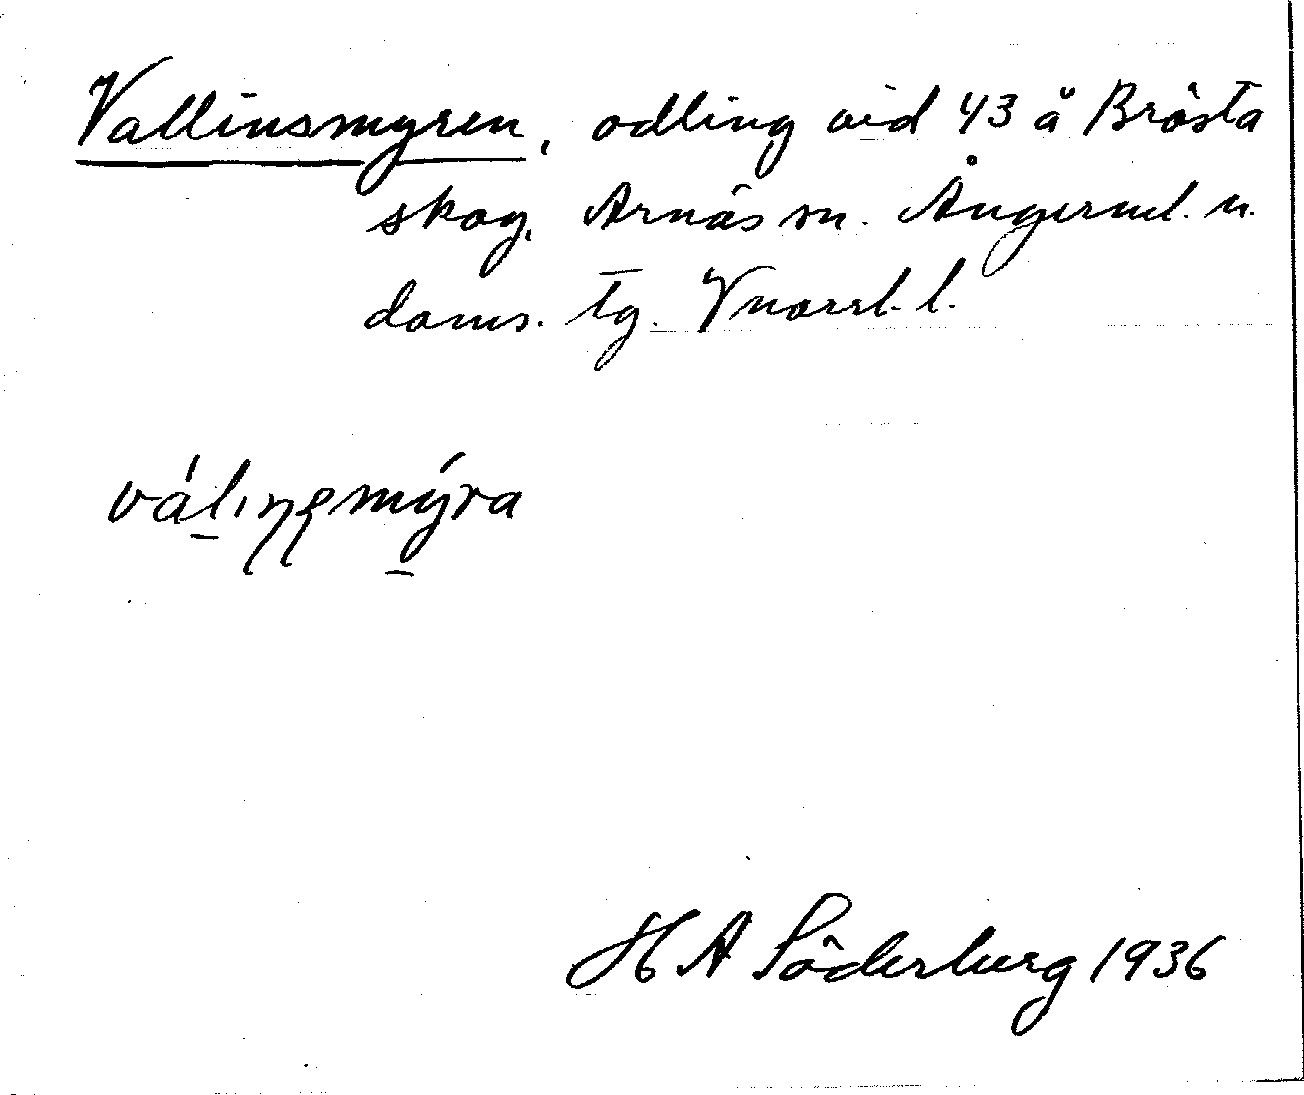 Vallinsmyren, odling vid 43 å Brösta
skog, Arnäs sn. Ångerml. n.
doms. tg. Vnorrl. l.
váliŋsmýra
H A Söderberg 1936